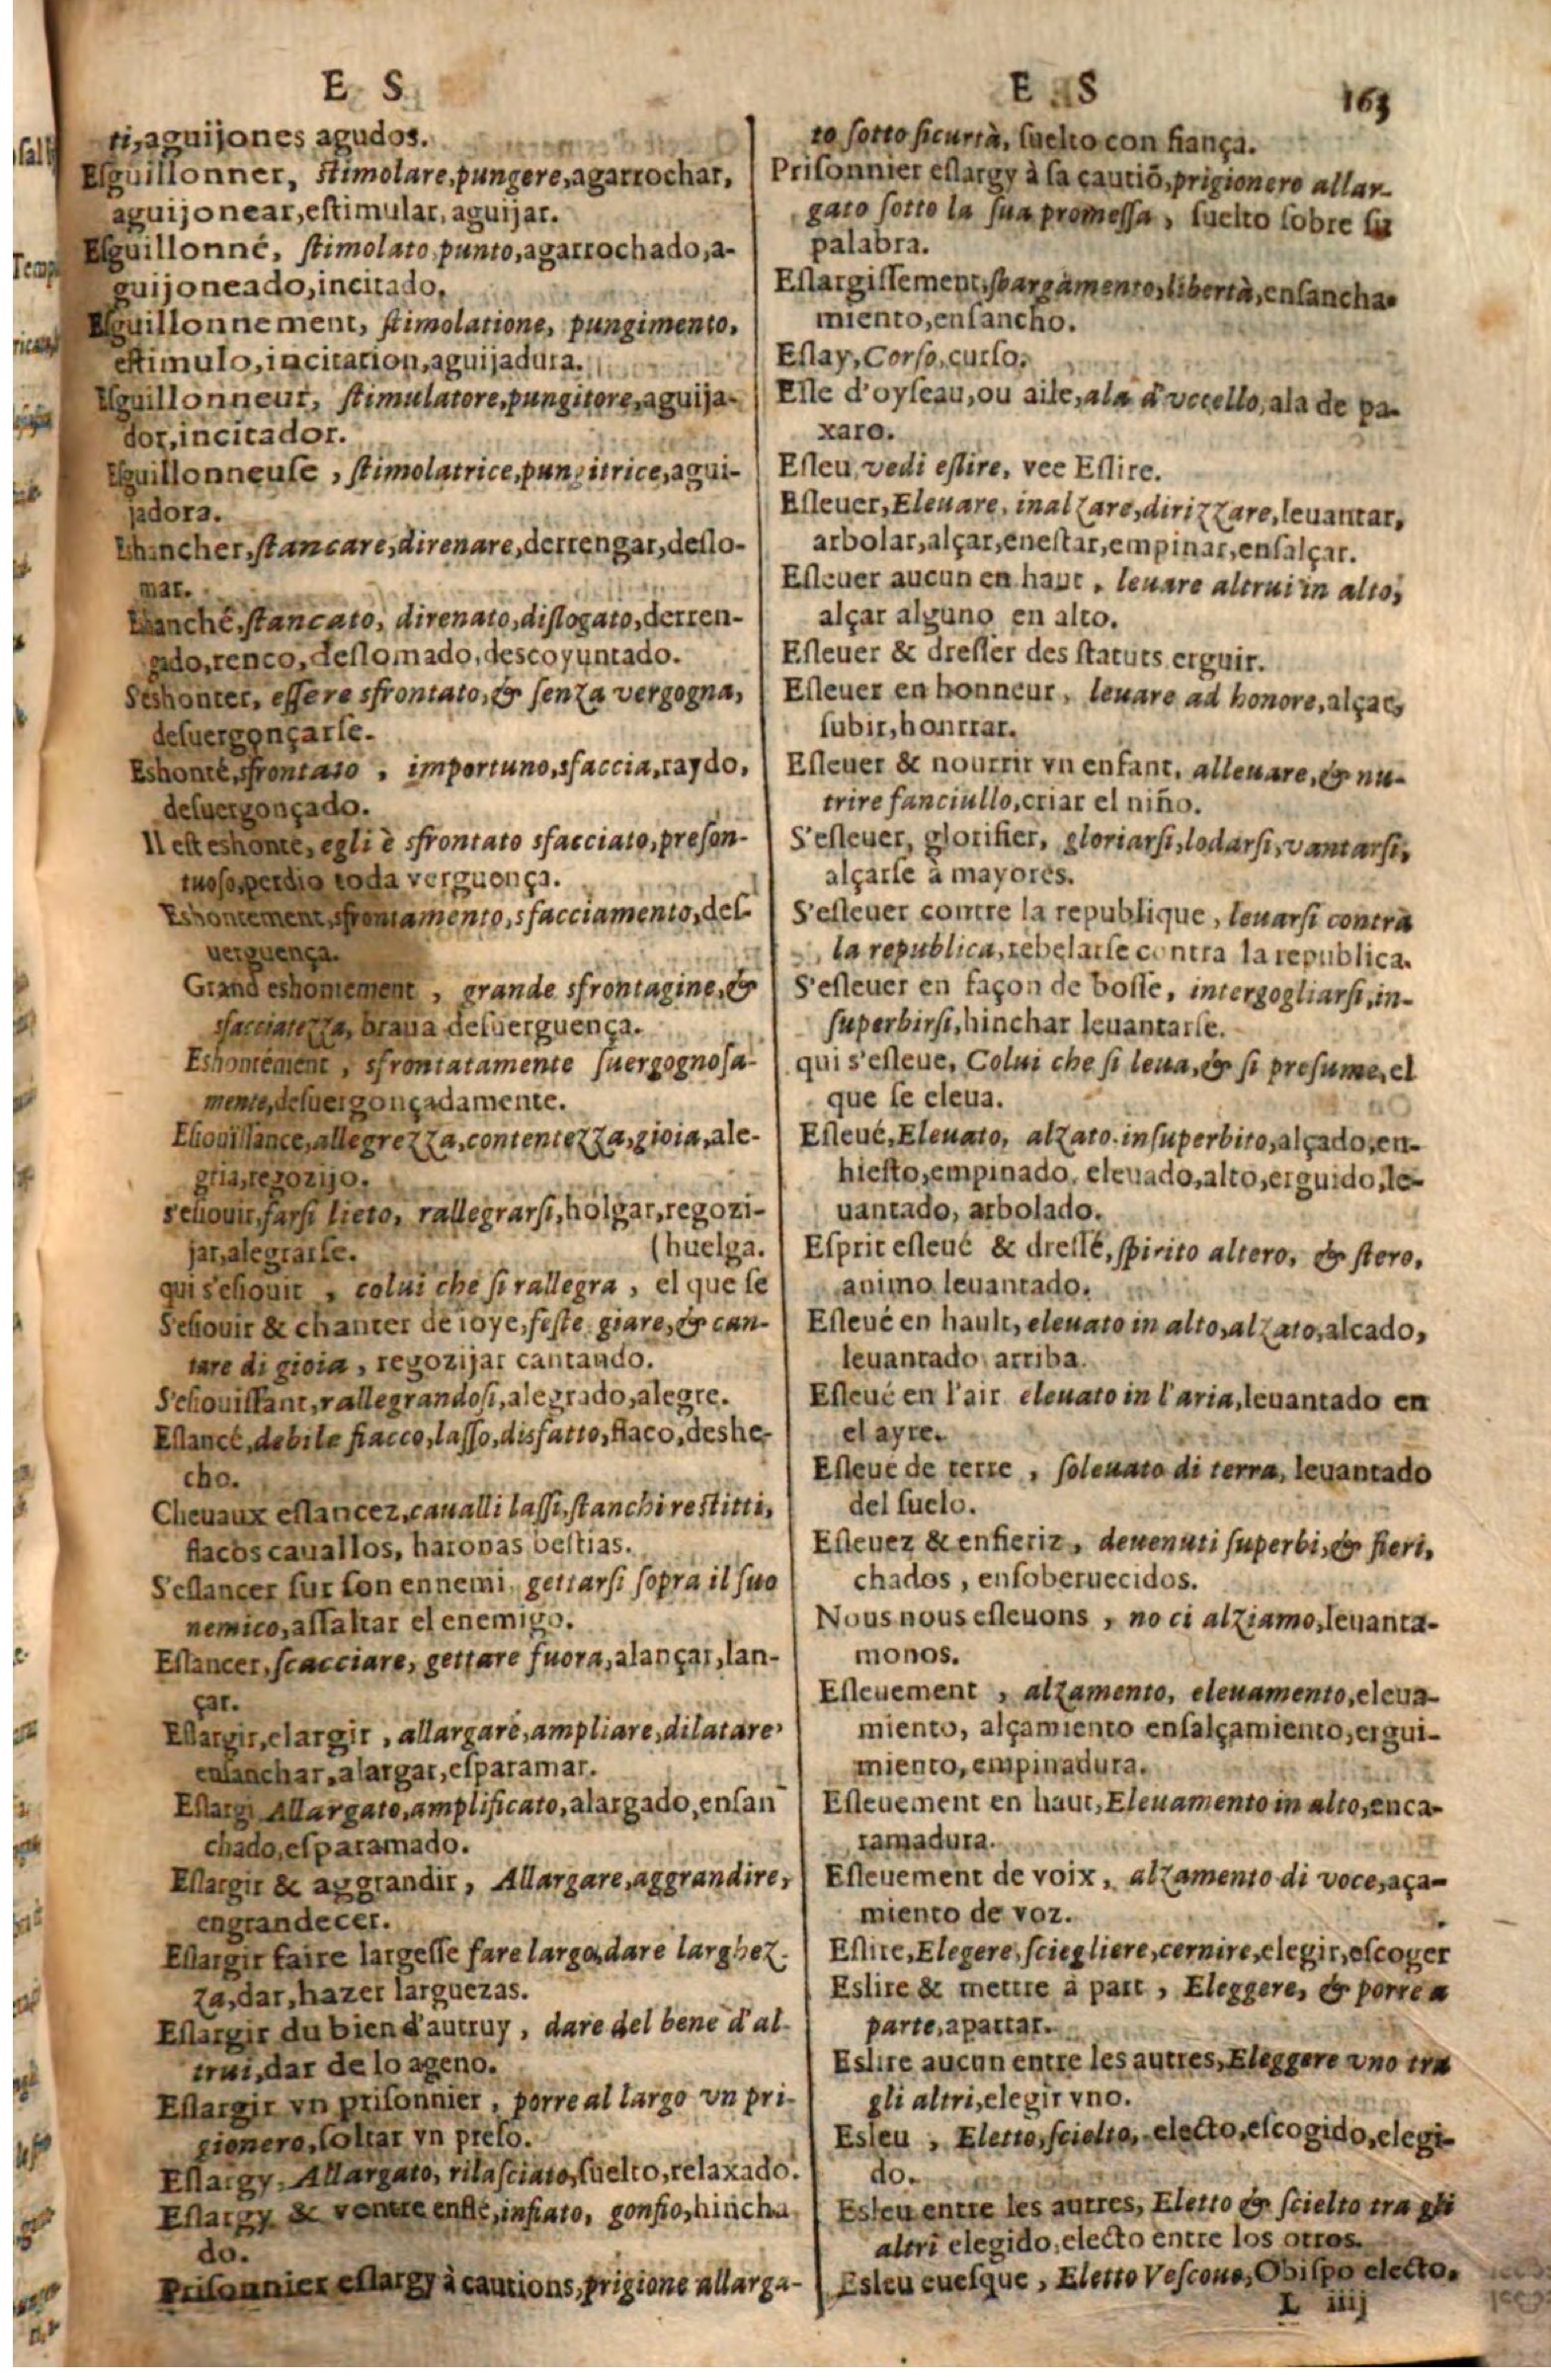 E S
ti, aguijones agudos.
Esguillonner, stimolare, pungere, agarrochar,
aguijonear, estimular, aguijar.
Esguillonné, stimolato, punto, agarrochado, a-
guijoneado, incitado,
Esguillonnement, stimolatione, pungimento,
estimulo, incitacion, aguijadura.
Esguillonneur, stimulatore, pungitore, aguija-
dor, incitador.
Esguillonneuse, stimolatrice, pungitrice, agui-
jadora.
Ehancher, stancare, direnare, derrengar, deslo-
mar.
Ehanché, stancato, direnato, dislogato, derren-
gado, renco, deslomado, descoyuntado.
S'eshonter, essere sfrontato, & senza vergogna,
desuergonçarse.
Eshonté, sfrontato, importuno, sfaccia, raydo,
desuergonçado.
Il est eshonté, egli è sfrontato sfacciato, preson-
tuoso, perdio toda verguença.
Eshontement, sfrontamento, sfacciamento, des-
uerguença.
Grand eshontement, grande sfrontagine, &
sfacciatezza, braua desuerguença.
Eshontément, sfrontatamente suergognosa-
mente, desuergonçadamente.
Esiouissance, allegrezza, contentezza, gioia, ale-
gria, regozijo.
s'esiouir, farsi lieto, rallegrarsi, holgar, regozi-
jar, alegrarse. (huelga.
qui s'esiouit, colui che si rallegra, el que se
S'esiouir & chanter de ioye, feste giare, & can-
tare di gioia, regozijar cantando.
S'esiouissant, rallegrandosi, alegrado, alegre.
Eslancé, debile fiacco, lasso, disfatto, flaco, deshe-
cho.
Cheuaux eslancez, caualli lassi, stanchi restitti,
flacos cauallos, haronas bestias.
S'eslancer sur son ennemi, gettarsi sopra il suo
nemico, assaltar el enemigo.
Eslancer, scacciare, gettare fuora, alançar, lan-
çar.
Eslargir, elargir, allargare, ampliare, dilatare,
ensanchar, alargar, esparamar.
Eslargi Allargato, amplificato, alargado, ensan
chado, esparamado.
Eslargir & aggrandir, Allargare, aggrandire,
engrandecer.
Eslargir faire largesse fare largo, dare larghez-
za, dar, hazer larguezas.
Eslargir du bien d'autruy, dare del bene d'al-
trui, dar de lo ageno.
Eslargir vn prisonnier, porre al largo vn pri-
gionero, soltar vn preso.
Eslargy, Allargato, rilasciato, suelto, relaxado.
Eslargy & ventre enflé, infiato, gonfio, hincha
do.
Prisonnier eslargy à cautions, prigione allarga-
E S 163
to sotto sicurtà, suelto con fiança.
Prisonnier eslargy à sa cautiõ, prigionero allar-
gato sotto la sua promessa, suelto sobre su
palabra.
Eslargissement, sbargamento, libertà, ensancha-
miento, ensancho.
Eslay, Corso, curso.
Esle d'oyseau, ou aile, ala d'vccello, ala de pa-
xaro.
Esleu, vedi eslire, vee Eslire.
Esleuer, Eleuare, inalzare, dirizzare, leuantar,
arbolar, alçar, enestar, empinar, ensalçar.
Esleuer aucun en haut, leuare altrui in alto,
alçar alguno en alto.
Esleuer & dresser des statuts erguir.
Esleuer en honneur, leuare ad honore, alçar,
subir, honrrar.
Esleuer & nourrir vn enfant, alleuare, & nu-
trire fanciullo, criar el niño.
S'esleuer, glorifier, gloriarsi, lodarsi, vantarsi,
alçarse à mayores.
S'esleuer contre la republique, leuarsi contra
la republica, rebelarse contra la republica.
S'esleuer en façon de bosse, intergogliarsi, in-
superbirsi, hinchar leuantarse.
qui s'esleue, Colui che si leua, & si presume, el
que se eleua.
Esleué, Eleuato, alzato insuperbito, alçado, en-
hiesto, empinado, eleuado, alto, erguido, le-
uantado, arbolado.
Esprit esleué & dressé, spirito altero, & stero,
animo leuantado.
Esleué en hault, eleuato in alto, alzato, alcado,
leuantado arriba.
Esleué en l'air eleuato in l'aria, leuantado en
el ayre.
Esleué de terre, soleuato di terra, leuantado
del suelo.
Esleuez & enfieriz, deuenuti superbi, & fieri,
chados, ensoberuecidos.
Nous nous esleuons, no ci alziamo, leuanta-
monos.
Esleuement, alzamento, eleuamento, eleua-
miento, alçamiento ensalçamiento, ergui-
miento, empinadura.
Esleuement en haut, Eleuamento in alto, enca-
ramadura.
Esleuement de voix, alzamento di voce, aça-
miento de voz.
Eslire, Elegere, sciegliere, cernire, elegir, escoger
Eslire & mettre à part, Eleggere, & porre a
parte, apartar.
Eslire aucun entre les autres, Eleggere vno tra
gli altri, elegir vno.
Esleu, Eletto, scielto, electo, escogido, elegi-
do.
Esleu entre les autres, Eletto & scielto tra gli
altri elegido, electo entre los otros.
Esleu euesque, Eletto Vescouo, Obispo electo.
L iiij